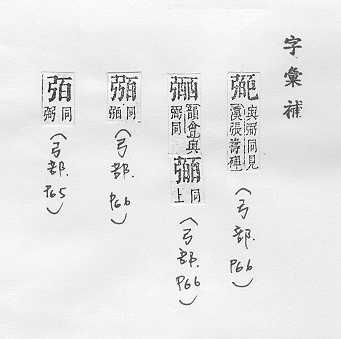 字彙補
與弼同見
漢張壽碑
(弓部.P66)
韻會與
弼同
同
上
(弓部.P66)
同
(弓部.P66)
同
弼
(弓部.P65)